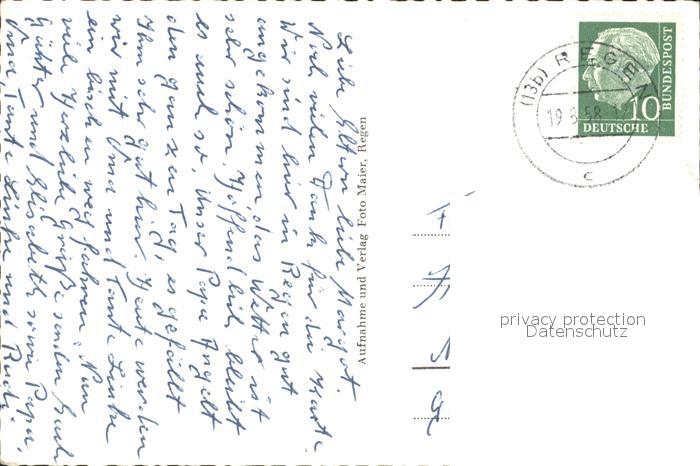 Liebe Eltern liebe Margot.
Noch vielen Dank für die Karte.
Wir sind hier in Regen gut
angekommen das Wetter ist
sehr schön. Hoffendlich bleibt
es auch so. Unser Papa angelt
den ganzen Tag, es gefällt
Ihm sehr gut hier. Heute werden
wir mit Oma und Tante Linke
ein bischen weg fahren. Nun
viele herzliche Grüße senden Euch
Günter und Elisabeth sowie Papa,
Oma, Tante Linke und Rudi.
Aufnahme und Verlag Foto Maier, Regen
(13b) REGEN
19.8.58
c
10
DEUTSCHE
BUNDESPOST
privacy protection
Datenschutz